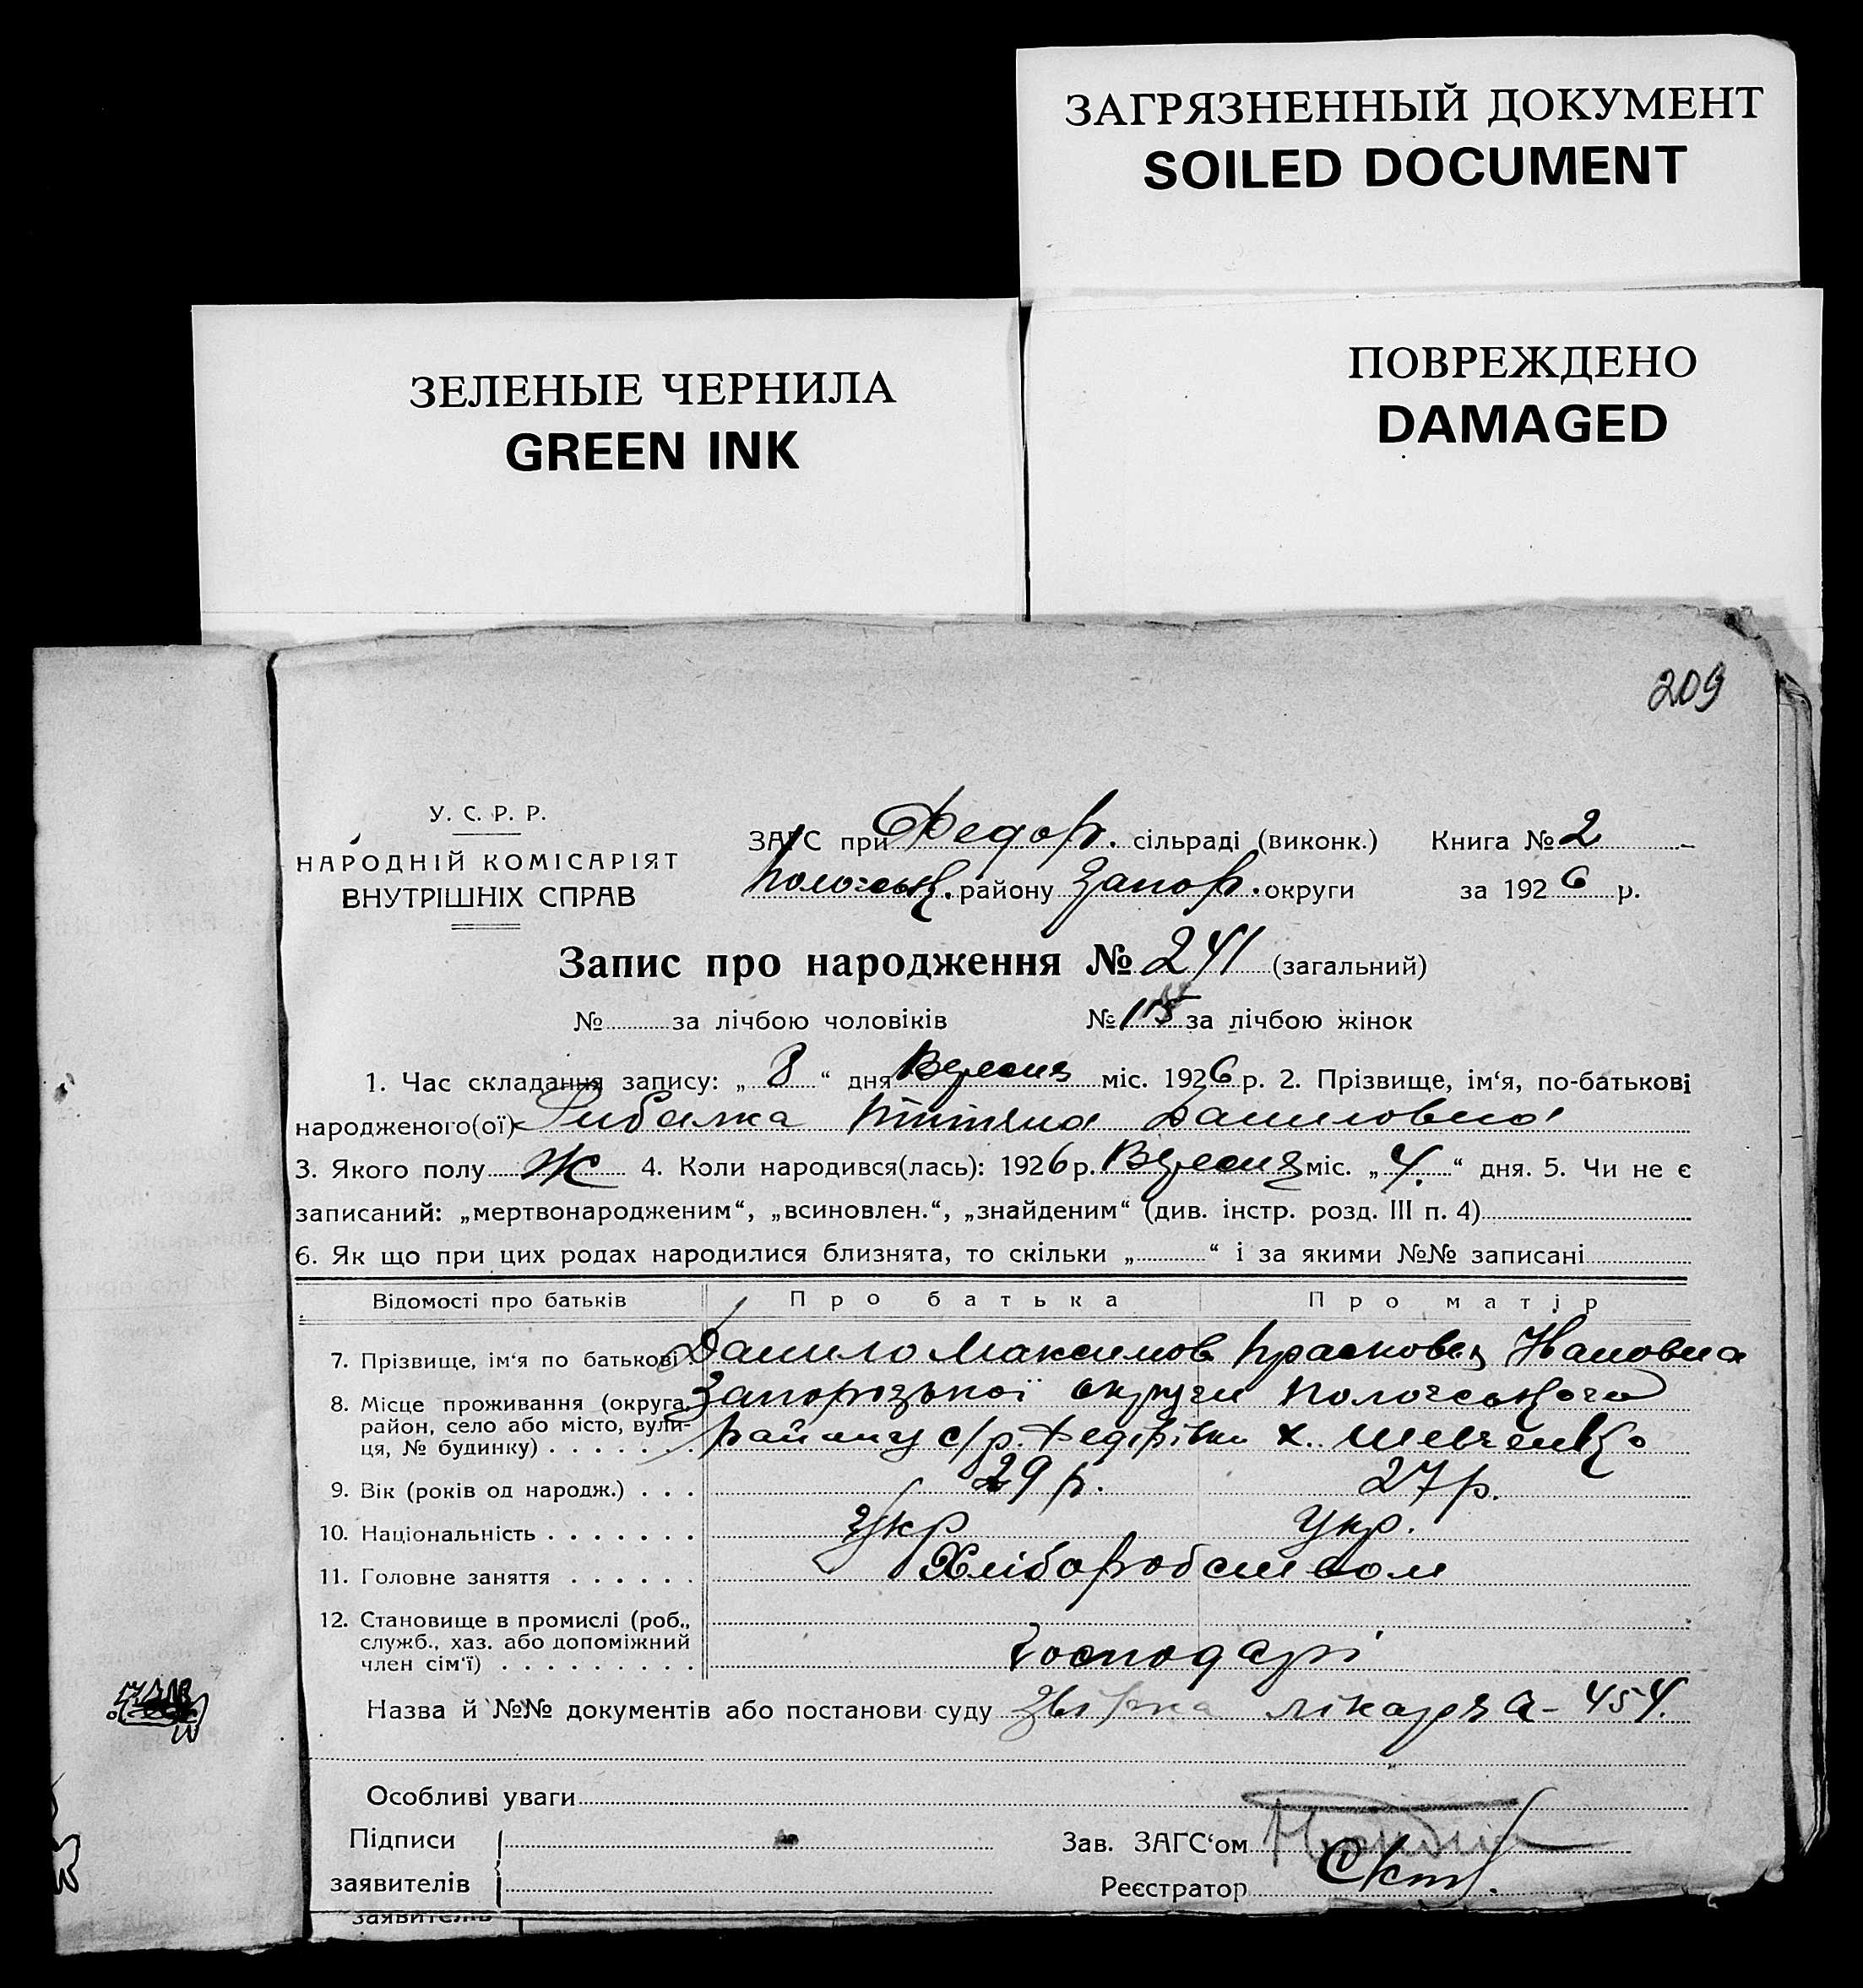 ЗАГРЯЗНЕННЫЙ ДОКУМЕНТ
SOILED DOCUMENT
ЗЕЛЕНЫЕ ЧЕРНИЛА
GREEN INK
ПОВРЕЖДЕНО
DAMAGED
209
У. С. Р. Р.
НАРОДНІЙ КОМІСАРІЯТ
ВНУТРІШНІХ СПРАВ
ЗАГС при Федор. сільраді (виконк.) Книга № 2
району Запор. округи за 1926 р.
Запис про народження № 241 (загальний)
№ за лічбою чоловіків № 115 за лічбою жінок
1. Час складання запису: „ 8 “ дня Вересня міс. 1926 р. 2. Прізвище, ім‘я, по-батькові
народженого(ої) Рибалка Даниловна
3. Якого полу Ж 4. Коли народився(лась): 1926 р. Вересня міс. „ 4. “ дня. 5. Чи не є
записаний: „мертвонародженим“, „всиновлен.“, „знайденим“ (див. інстр. розд. III п. 4)
6. Як що при цих родах народилися близнята, то скільки „ “ і за якими №№ записані
Відомості про батьків Про батька Про матір
7. Прізвище, ім‘я по батькові Данило Максимов
8. Місце проживання (округа, Запорізької округи
район, село або місто, вули- району с/р. Федірівки х. Шевченко
ця, № будинку)
9. Вік (років од народж.) 29 р. 27 р.
10. Національність Укр Укр.
11. Головне заняття Хліборобством
12. Становище в промислі (роб.,
служб., хаз. або допоміжний
член сім‘ї) Господарі
Назва й №№ документів або постанови суду лікаря - 454.
Особливі уваги
Підписи
заявителів
Зав. ЗАГС‘ом
Реєстратор
заявителів